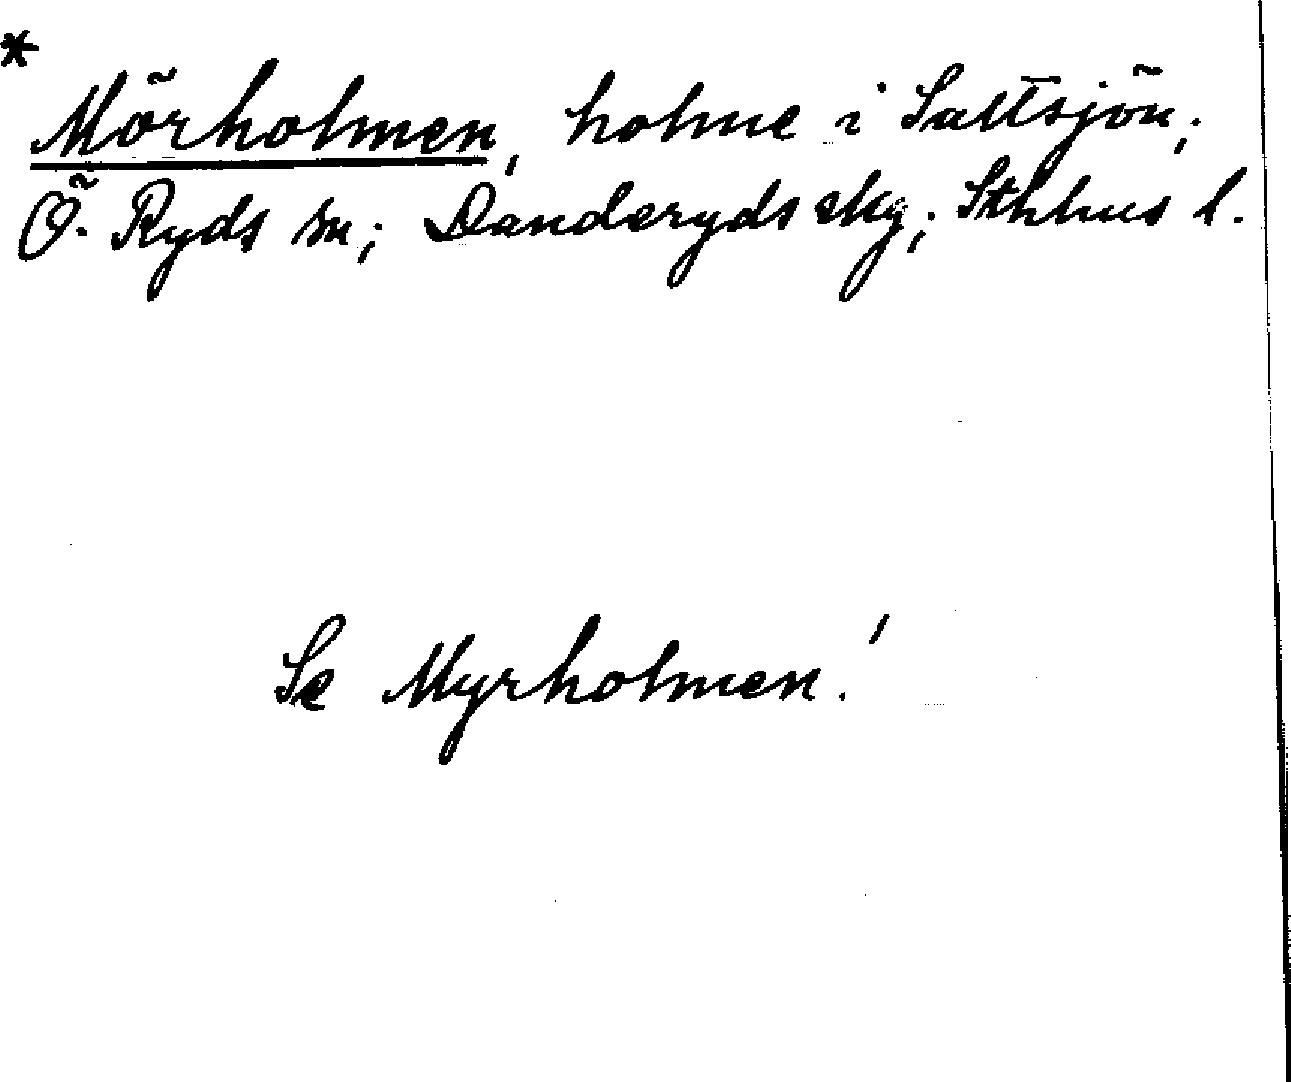 *
Mörholmen, holme i Saltsjön;
Ö. Ryds sn; Danderyds skg; Sthlms l.
Se Myrholmen!